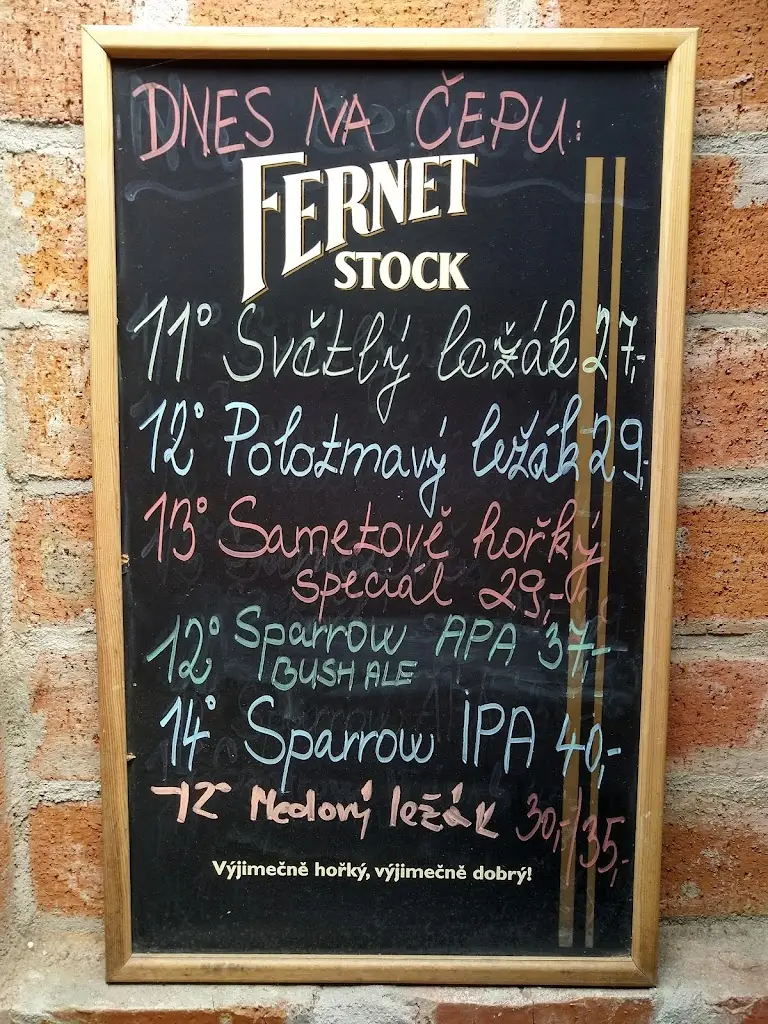 DNES NA ČEPU:
FERNET
STOCK
11° Světlý ležák 27,-
12° Polotmavý ležák 29,-
13° Sametově hořký
speciál 29,-
12° Sparrow APA 37,-
BUSH ALE
14° Sparrow IPA 40,-
12° Medový ležák 30,-/35,-
Výjimečně hořký, výjimečně dobrý!